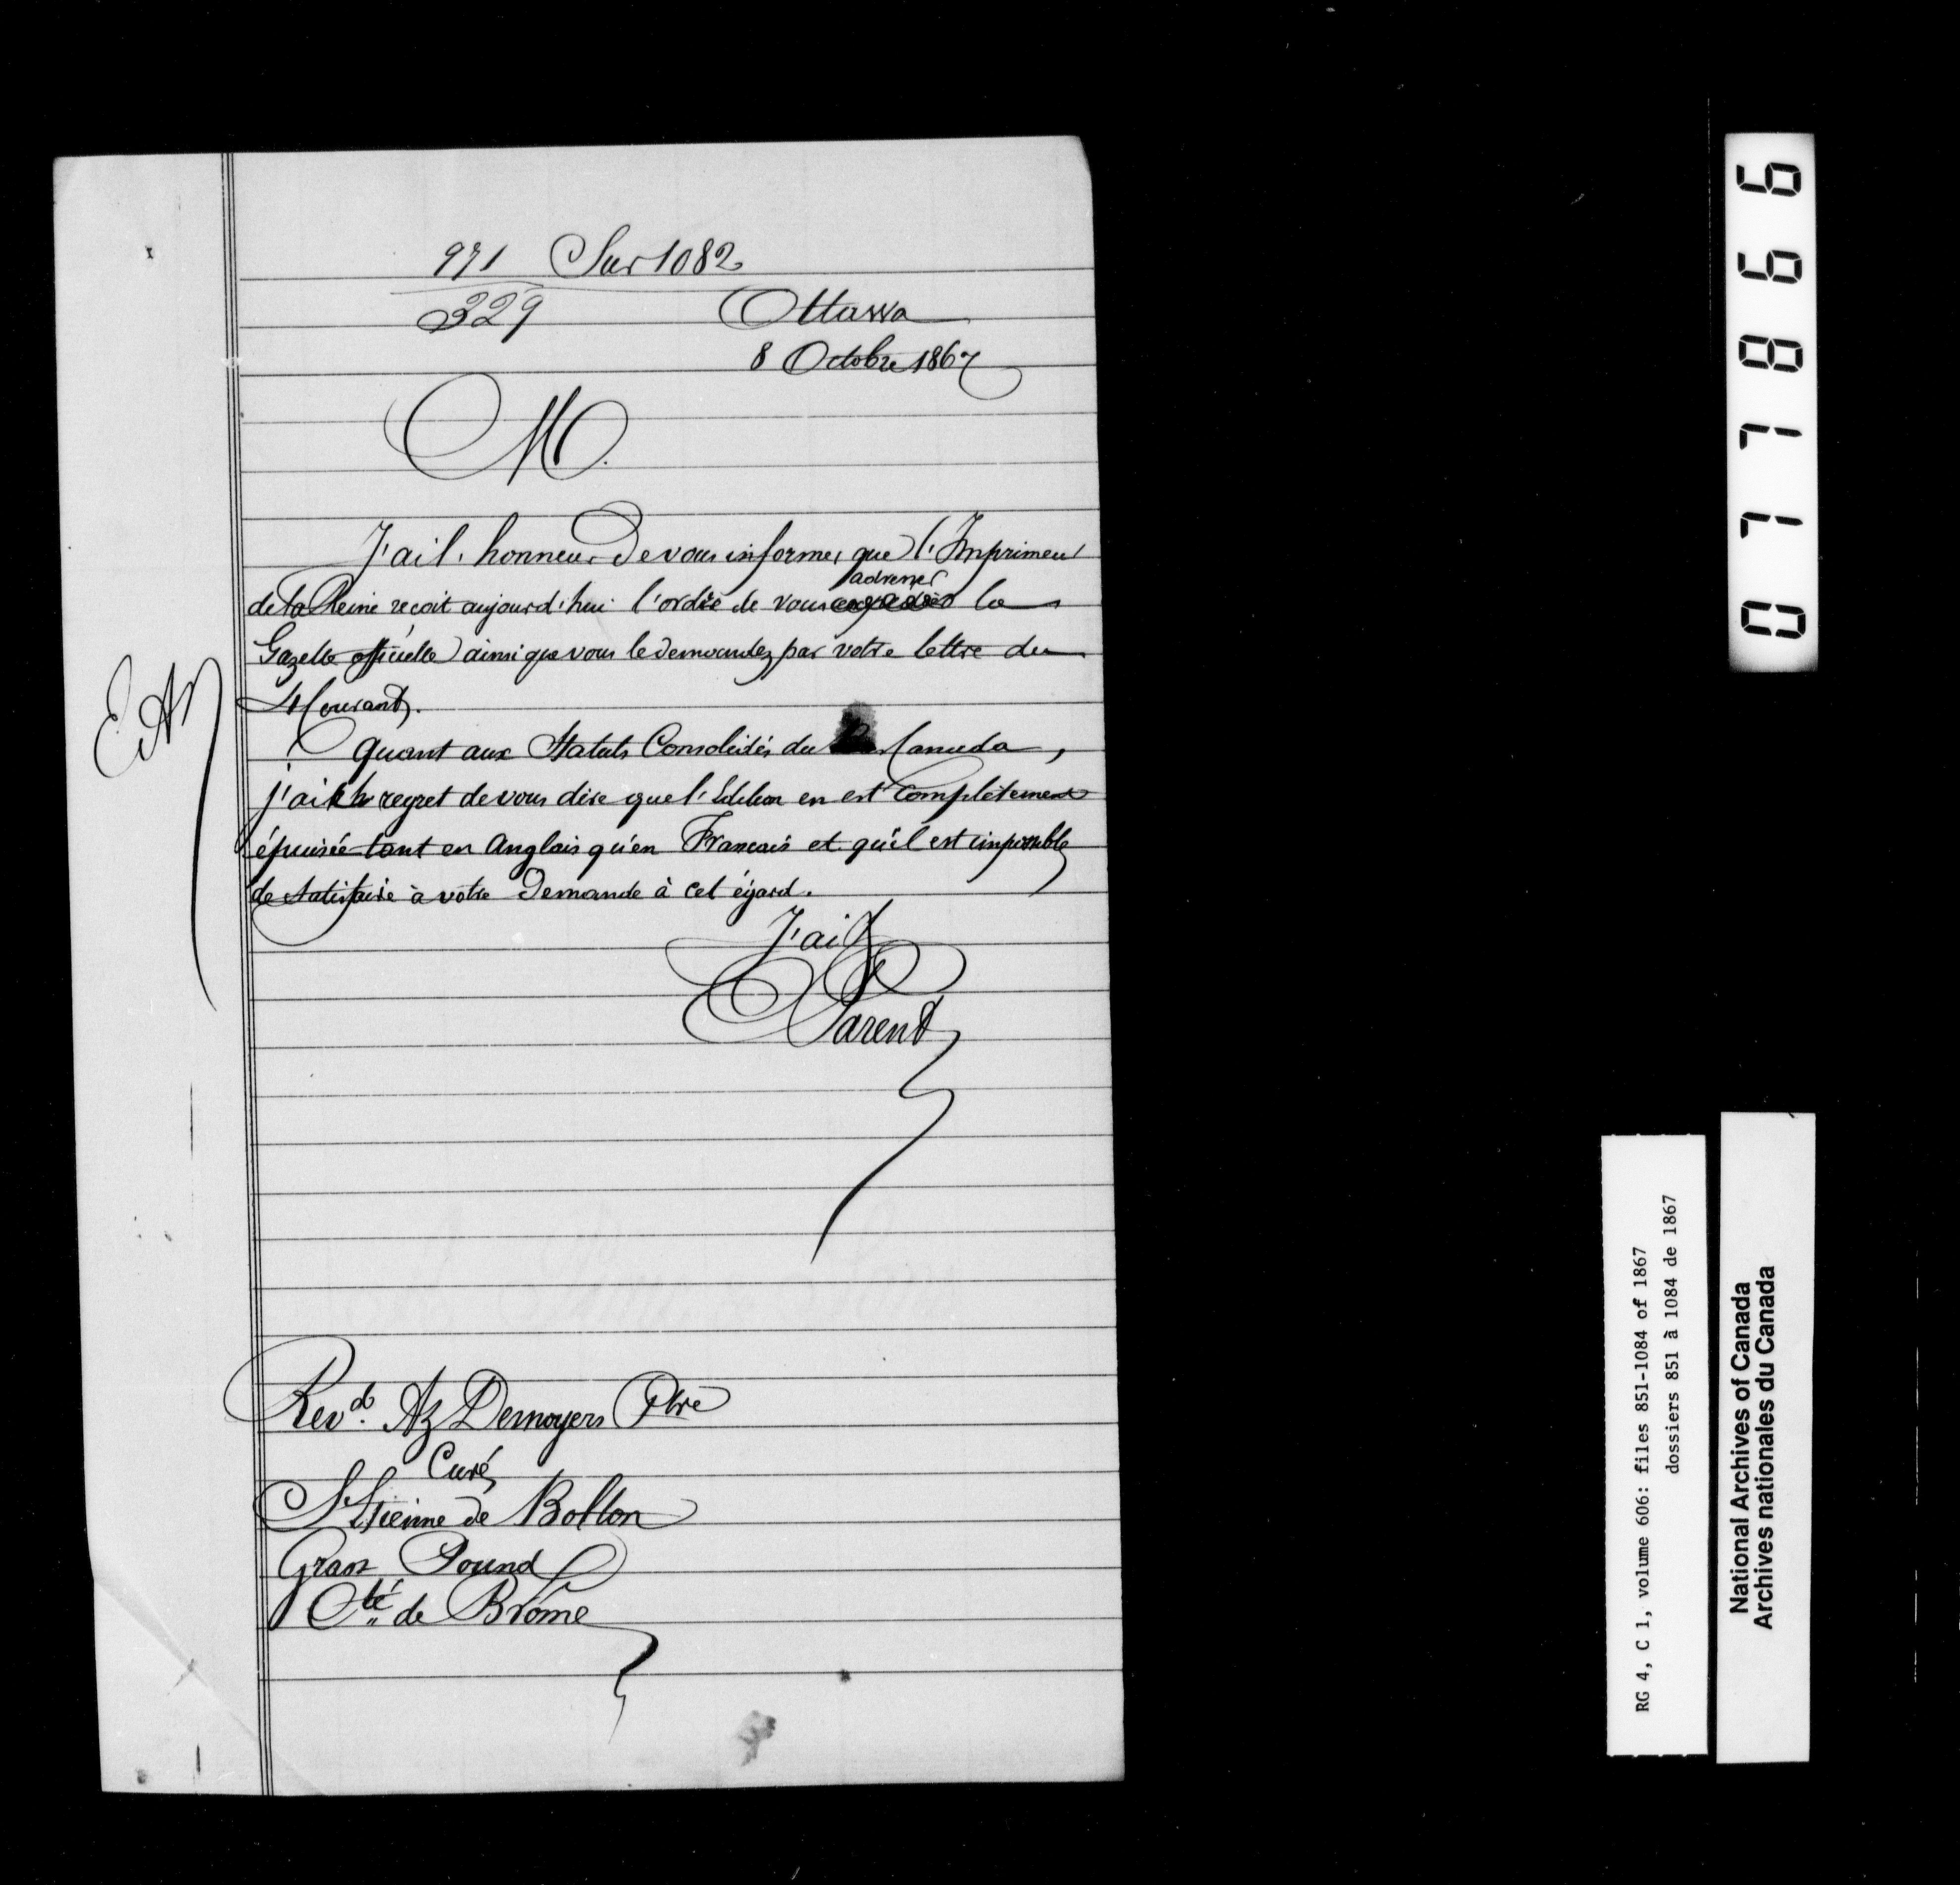 971 Sur 1082
329 Ottawa
8 Octobre 1867
M.
J'ai l'honneur de vous informer que l'Imprimeur
adresser
de la Reine reçoit aujourd'hui l'ordre de vous la
Gazette officielle ainsi que vous le demandez par votre lettre du
4 Courant.
Quant aux Statuts Consolidés du Canada,
j'ai le regret de vous dire que l'Edition en est complètement
épuisée tant en Anglais qu'en Francais et qu'il est impossible
de satisfaire à votre Demande à cet égard.
J'ai &
E Parent
EAM
Revd. Az Desnoyers Ptre
Curé
St Etienne de Bolton
Grass Pound
Cté de Brome
077866
RG 4, C 1, volume 606: files 851-1084 of 1867
dossiers 851 à 1084 de 1867
National Archives of Canada
Archives nationales du Canada